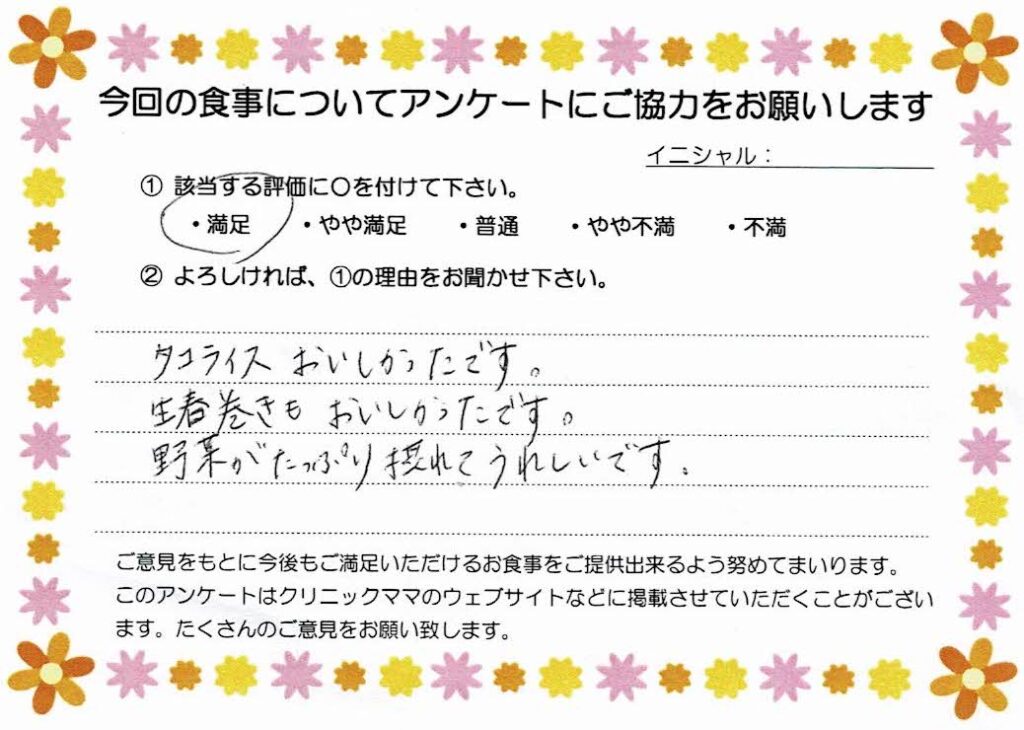 今回の食事についてアンケートにご協力をお願いします
イニシャル：
① 該当する評価に〇を付けて下さい。
・満足 ・やや満足 ・普通 ・やや不満 ・不満
② よろしければ、①の理由をお聞かせ下さい。
タコライス おいしかったです。
生春巻きも おいしかったです。
野菜がたっぷり摂れてうれしいです。
ご意見をもとに今後もご満足いただけるお食事をご提供出来るよう努めてまいります。
このアンケートはクリニックママのウェブサイトなどに掲載させていただくことがござい
ます。たくさんのご意見をお願い致します。